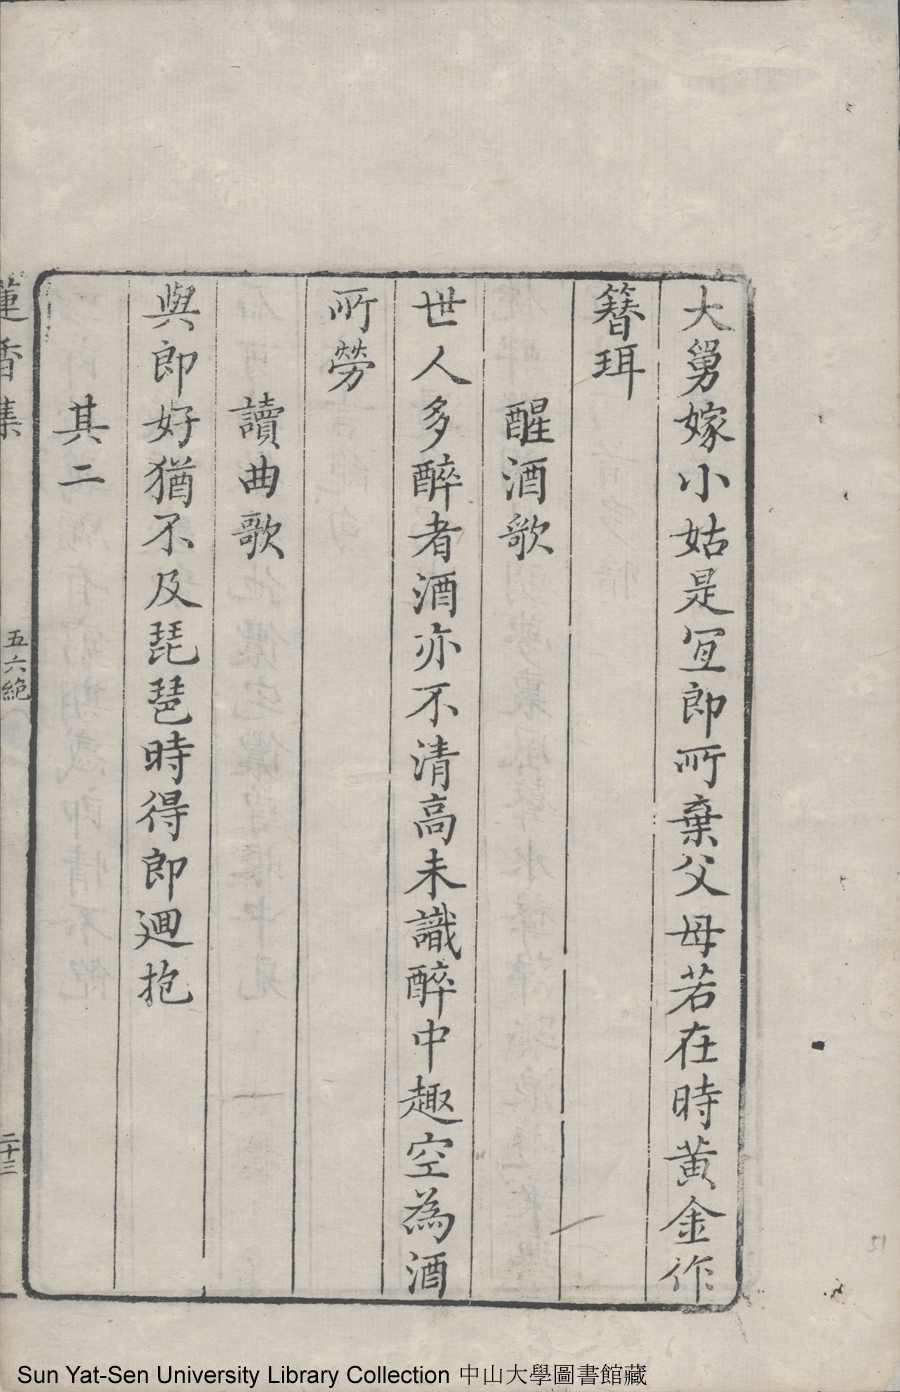 大舅嫁小姑是宜郎所棄父母若在時黃金作
簪珥
醒酒歌
世人多醉者酒亦不清高未識醉中趣空為酒
所勞
讀曲歌
與郎好猶不及琵琶時得郎迴抱
其二
蓮香集
五六絶
二十三
Sun Yat-Sen University Library Collection 中山大學圖書館藏